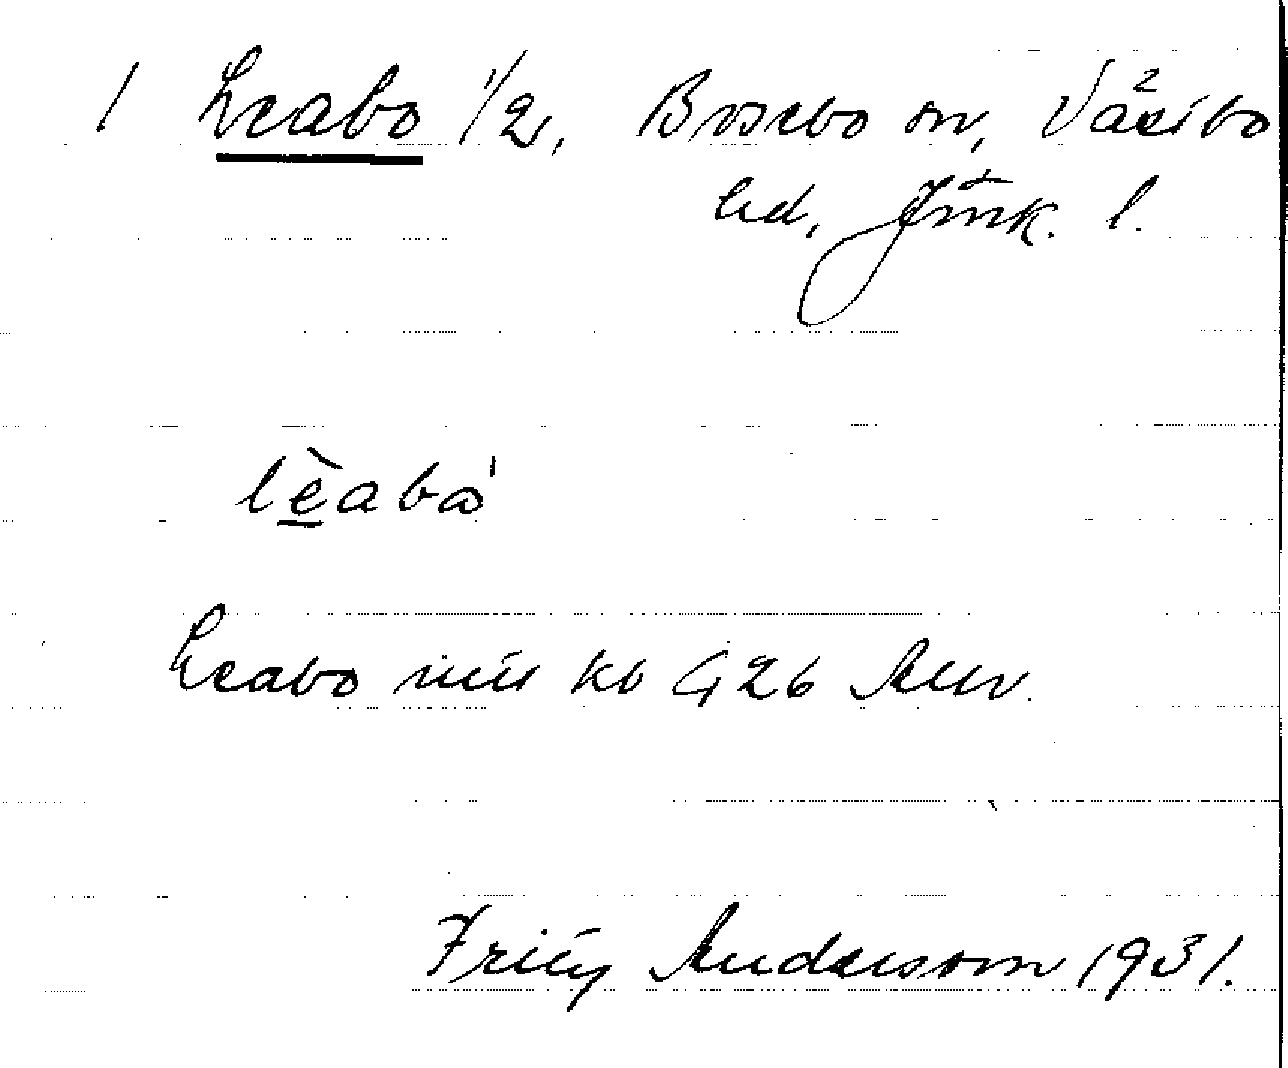 1 Leabo 1/2, Bosebo sn, Västbo
hd, Jönk. l.
lèabó
Leabo kb G 26
Fritz Andersson 1931.